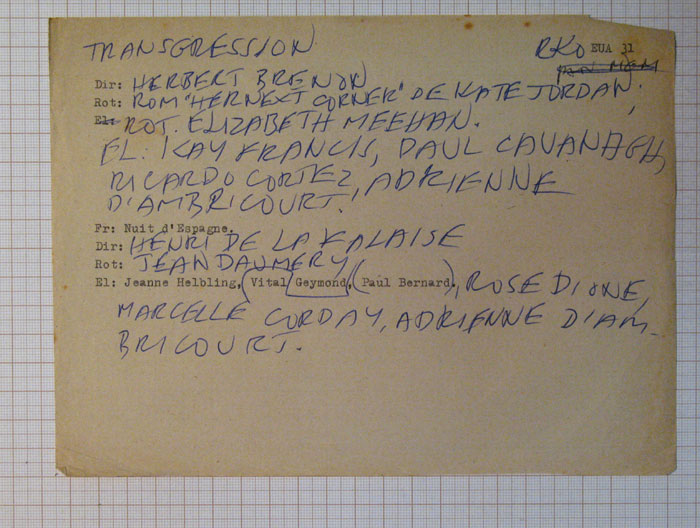 TRANSGRESSION RKO EUA 31
Dir: HERBERT BRENON
Rot: ROM "HER NEXT CORNER" DE KATE JORDAN;
El: ROT. ELIZABETH MEEHAN.
EL: KAY FRANCIS, PAUL CAVANAGH,
RICARDO CORTEZ, ADRIENNE
D'AMBRICOURT.
Fr: Nuit d'Espagne.
Dir: HENRI DE LA FALAISE
Rot: JEAN DAUMERY
El: Jeanne Helbling, (Vital Geymond, (Paul Bernard), ROSE DIONE,
MARCELLE CORDAY, ADRIENNE D'AM-
BRICOURT.